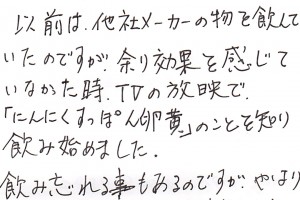 以前は、他社メーカーの物を飲んで
いたのですが、余り効果を感じて
いなかった時、TVの放映で、
「にんにくすっぽん卵黄」のことを知り
飲み始めました。
飲み忘れる事もあるのですが、やはり